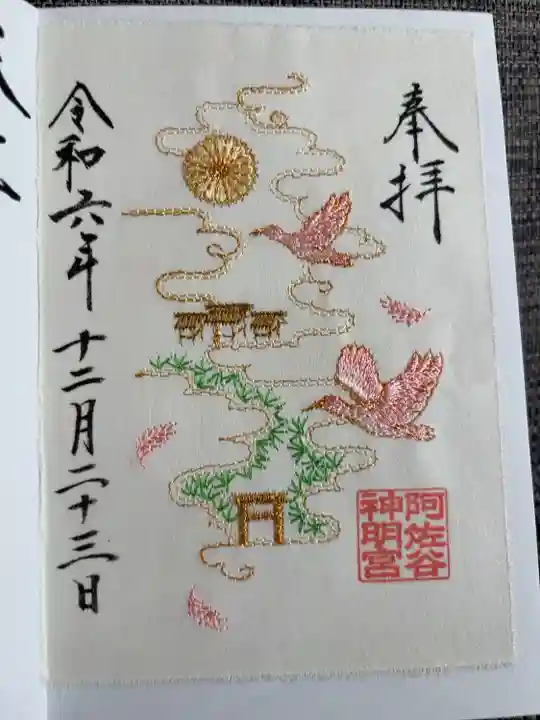 奉拝
阿佐谷
神明宮
令和六年 十二月二十三日